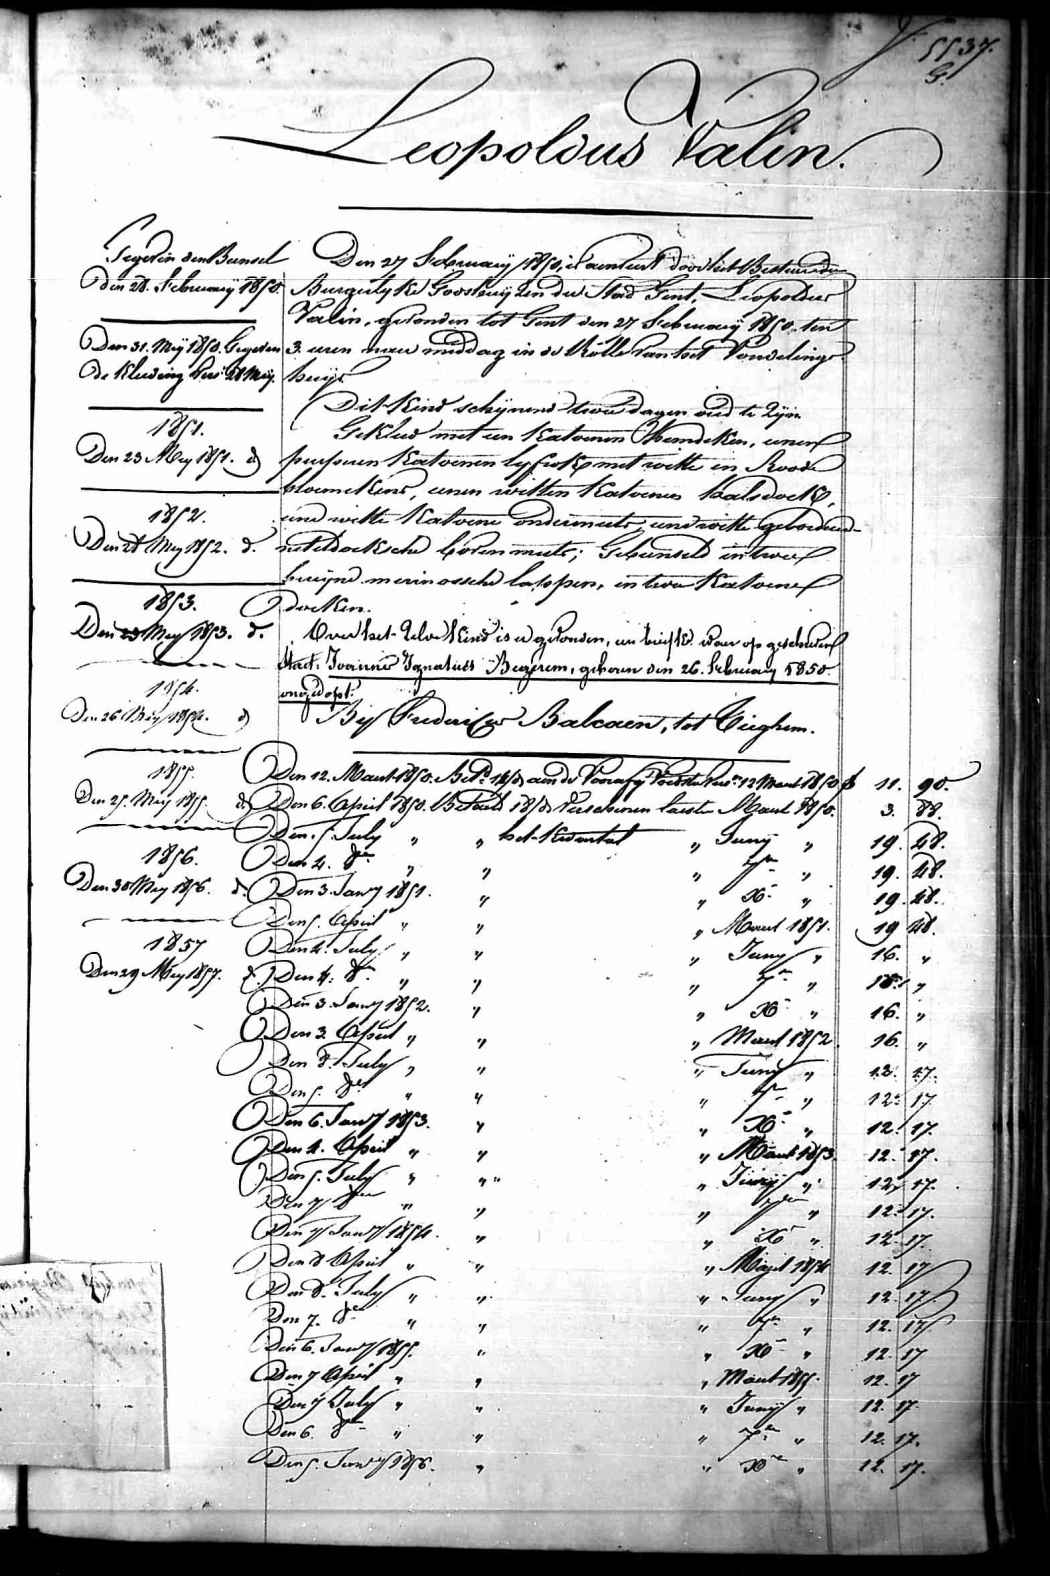 5537.
Leopoldus Valin.
Gegeven den Bunsel
den 28. February 1850.
Den 31. Mey 1850. Gegeven
de kleeding
1851.
Den 23 Mey 1851. d
1852.
Den 28 Mey 1852. d.
1853.
Den 23 Mey 1853. d.
1854.
Den 26 Mey 1854. d
1855.
Den 25. Mey 1855. d
1856.
Den 30 Mey 1856. d.
1857
Den 29 Mey 1857. d.
Den 27 February 1850, is aenveerd door het Bestuur der
Burgerlyke Godshuyzen der Stad Gent, Leopoldus
Valin, gevonden tot Gent den 27 February 1850. ten
3. uren naer middag in de Rolle van het Vondelings
huys
Dit kind schynend twee dagen oud te zyn.
Gekleed met een katoenen hemdeken, eenen
persenen katoenen lyfrok met witte en Roode
bloemekens, eenen witten katoenen halsdoek,
eene witte katoene ondermuts, eene witte geborduerd-
neteldoeksche bovenmuts; Gebunseld in twee
bruyne merinossche lappen, in twee katoene
doeken.
Over het zelve kind is er gevonden, een briefke waer op geschreven
staet: Joannes Ignatius Begerem, geboren den 26. february 1850.
ongedopt.
By Frederic Balcaen, tot Tieghem.
Den 12. Maert 1850. Bet. aen de Voorafg. 12 Maert 1850 f 11. 90.
Den 6. April 1850. Betaeld Verschenen laesten Maert 1850. 3. 88.
Den 5. July " " het kwartael " Juny " 19. 48.
Den 4. 8er " " " 7er " 19. 48.
Den 3. Jany 1851. " " X " 19. 48.
Den 5. April " " " Maert 1851. 19 48.
Den 4. July " " " Juny " 16. "
Den 4. 8r " " " 7er " 16. "
Den 3. Jany 1852. " " X " 16. "
Den 3. April " " " Maert 1852 16. "
Den 8. July " " " Juny " 12. 17.
Den 5. 8er " " " 7er " 12. 17.
Den 6. Jany 1853. " " X " 12. 17.
Den 4. April " " " Maert 1853 12. 17.
Den 5. July " " " Juny " 12. 17.
Den 7 8er " " " 7er " 12. 17.
Den 7 Jany 1854. " " X " 12. 17.
Den 8 April " " " Maert 1854 12. 17
Den 8. July " " " Juny " 12. 17.
Den 7. 8er " " " 7er " 12. 17
Den 6. Jany 1855. " " X " 12. 17
Den 7 April " " " Maert 1855. 12. 17
Den 7 July " " " Juny " 12. 17.
Den 6. 8er " " " 7er " 12. 17.
Den 5. Jany 1856. " " X " 12. 17.